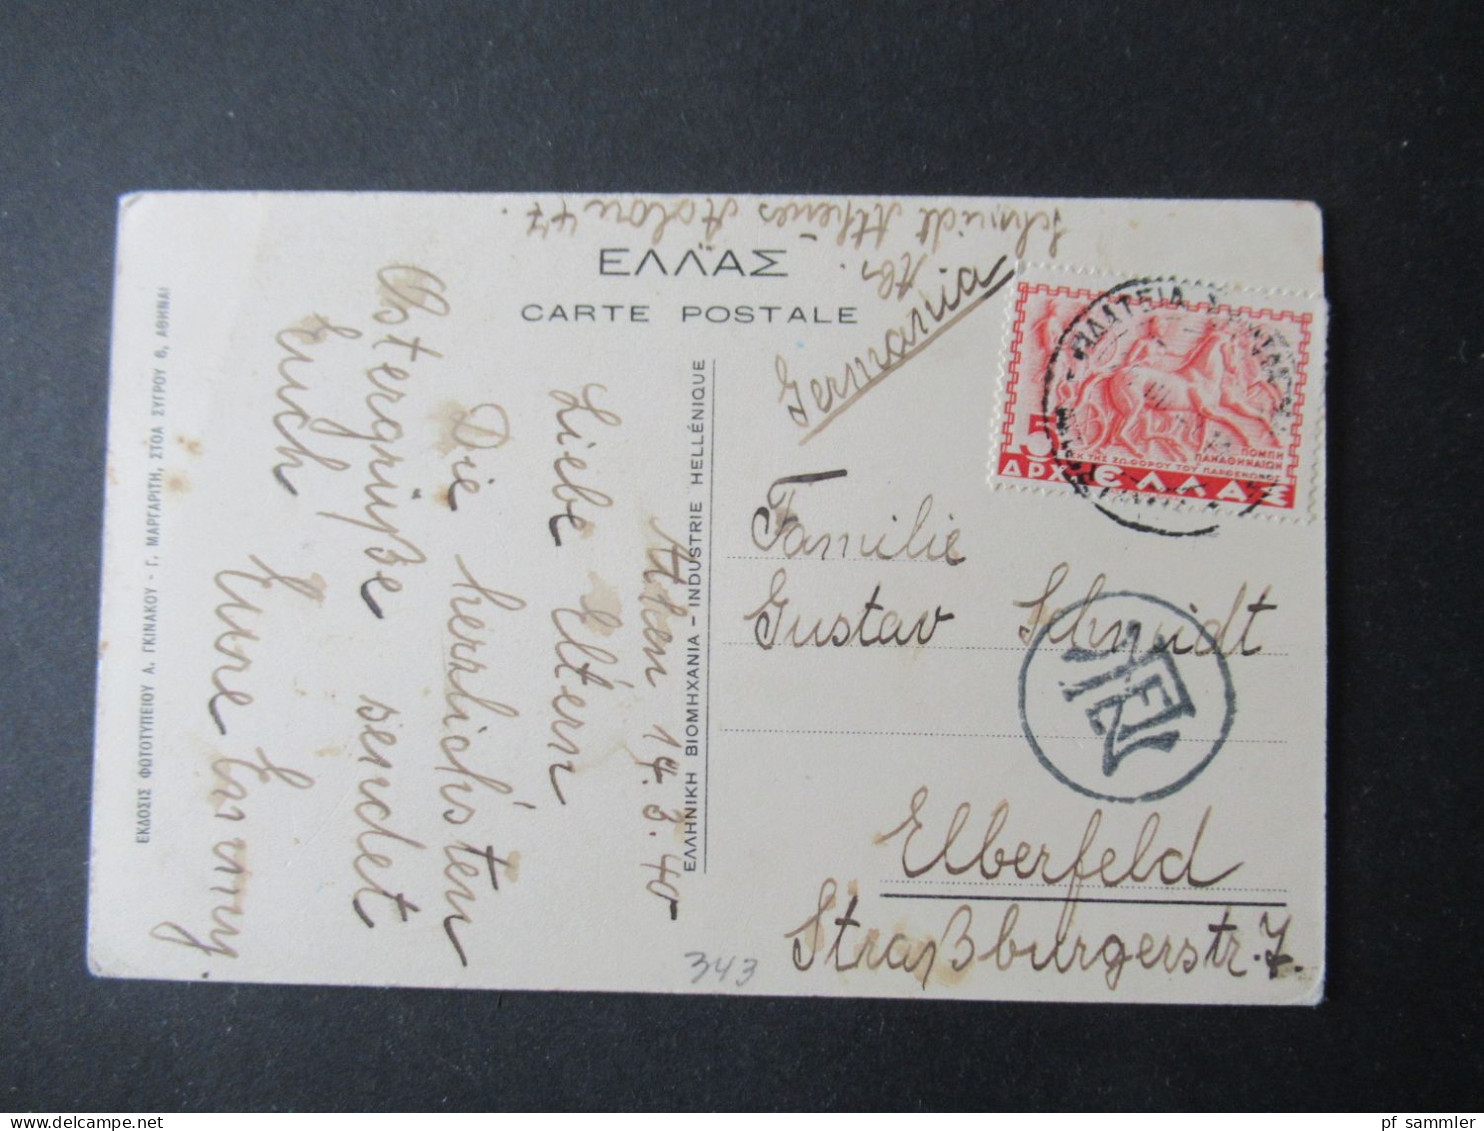 ΕΛΛΑΣ
CARTE POSTALE
Schmidt Athènes Aolou 47.
Germania
5
ΑΡΧ.
ΕΛΛΑΣ
ΠΟΜΠΗ
ΠΑΝΑΘΗΝΑΙΩΝ
ΕΚ ΤΗΣ ΖΩΦΟΡΟΥ ΤΟΥ ΠΑΡΘΕΝΩΝΟΣ
ΠΛΑΤΕΙΑ
Familie
Gustav Schmidt
Elberfeld
Straßburgerstr. 7.
343
ΕΛΛΗΝΙΚΗ ΒΙΟΜΗΧΑΝΙΑ - INDUSTRIE HELLÉNIQUE
Athen 14.3.40
Liebe Eltern
Die herrlichsten
Ostergrüße sendet
Euch
Eure
ΕΚΔΟΣΙΣ ΦΩΤΟΤΥΠΕΙΟΥ Α. ΓΚΙΝΑΚΟΥ - Γ. ΜΑΡΓΑΡΙΤΗ, ΣΤΟΑ ΣΥΓΡΟΥ 6, ΑΘΗΝΑΙ
pf sammler
www.delcampe.net